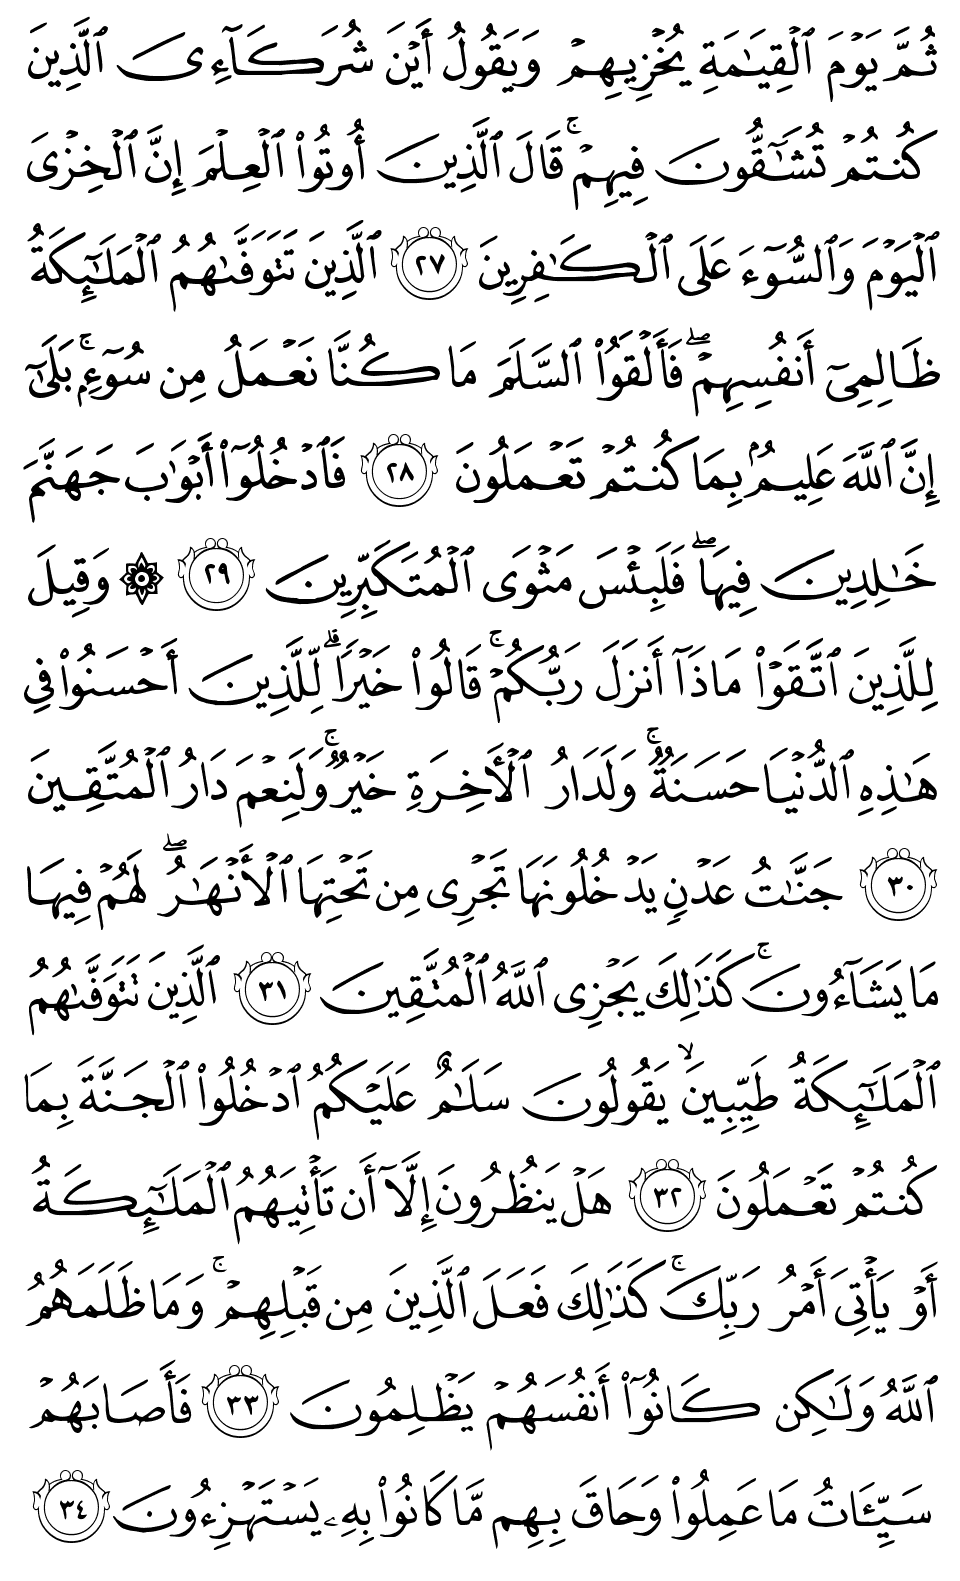 ثُمَّ يَوْمَ ٱلْقِيَٰمَةِ يُخْزِيهِمْ وَيَقُولُ أَيْنَ شُرَكَآءِىَ ٱلَّذِينَ
كُنتُمْ تُشَٰٓقُّونَ فِيهِمْ ۚ قَالَ ٱلَّذِينَ أُوتُوا۟ ٱلْعِلْمَ إِنَّ ٱلْخِزْىَ
ٱلْيَوْمَ وَٱلسُّوٓءَ عَلَى ٱلْكَٰفِرِينَ ٢٧ ٱلَّذِينَ تَتَوَفَّىٰهُمُ ٱلْمَلَٰٓئِكَةُ
ظَالِمِىٓ أَنفُسِهِمْ ۖ فَأَلْقَوُا۟ ٱلسَّلَمَ مَا كُنَّا نَعْمَلُ مِن سُوٓءٍۭ ۚ بَلَىٰٓ
إِنَّ ٱللَّهَ عَلِيمٌۢ بِمَا كُنتُمْ تَعْمَلُونَ ٢٨ فَٱدْخُلُوٓا۟ أَبْوَٰبَ جَهَنَّمَ
خَٰلِدِينَ فِيهَا ۖ فَلَبِئْسَ مَثْوَى ٱلْمُتَكَبِّرِينَ ٢٩ ۞ وَقِيلَ
لِلَّذِينَ ٱتَّقَوْا۟ مَاذَآ أَنزَلَ رَبُّكُمْ ۚ قَالُوا۟ خَيْرًا ۗ لِّلَّذِينَ أَحْسَنُوا۟ فِى
هَٰذِهِ ٱلدُّنْيَا حَسَنَةٌ ۚ وَلَدَارُ ٱلْأَخِرَةِ خَيْرٌ ۚ وَلَنِعْمَ دَارُ ٱلْمُتَّقِينَ
٣٠ جَنَّٰتُ عَدْنٍ يَدْخُلُونَهَا تَجْرِى مِن تَحْتِهَا ٱلْأَنْهَٰرُ ۖ لَهُمْ فِيهَا
مَا يَشَآءُونَ ۚ كَذَٰلِكَ يَجْزِى ٱللَّهُ ٱلْمُتَّقِينَ ٣١ ٱلَّذِينَ تَتَوَفَّىٰهُمُ
ٱلْمَلَٰٓئِكَةُ طَيِّبِينَ ۙ يَقُولُونَ سَلَٰمٌ عَلَيْكُمُ ٱدْخُلُوا۟ ٱلْجَنَّةَ بِمَا
كُنتُمْ تَعْمَلُونَ ٣٢ هَلْ يَنظُرُونَ إِلَّآ أَن تَأْتِيَهُمُ ٱلْمَلَٰٓئِكَةُ
أَوْ يَأْتِىَ أَمْرُ رَبِّكَ ۚ كَذَٰلِكَ فَعَلَ ٱلَّذِينَ مِن قَبْلِهِمْ ۚ وَمَا ظَلَمَهُمُ
ٱللَّهُ وَلَٰكِن كَانُوٓا۟ أَنفُسَهُمْ يَظْلِمُونَ ٣٣ فَأَصَابَهُمْ
سَيِّـَٔاتُ مَا عَمِلُوا۟ وَحَاقَ بِهِم مَّا كَانُوا۟ بِهِۦ يَسْتَهْزِءُونَ ٣٤